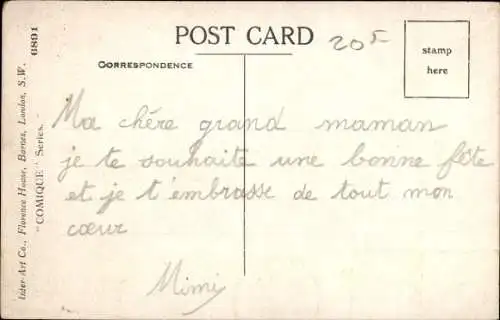 POST CARD
20F
CORRESPONDENCE
stamp
here
Ma chére grand maman
je te souhaite une bonne fête
et je t'embrasse de tout mon
cœur
Mimi
Inter-Art Co., Florence House, Barnes, London, S.W.
"COMIQUE" Series.
6891